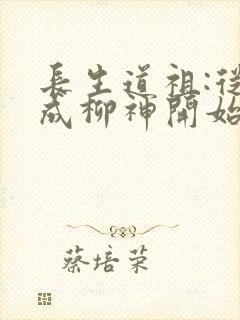 長生道祖:從
成柳神開始
蔡培荣